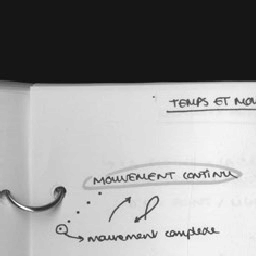 TEMPS ET MOU
MOUVEMENT CONTINU
mouvement complexe